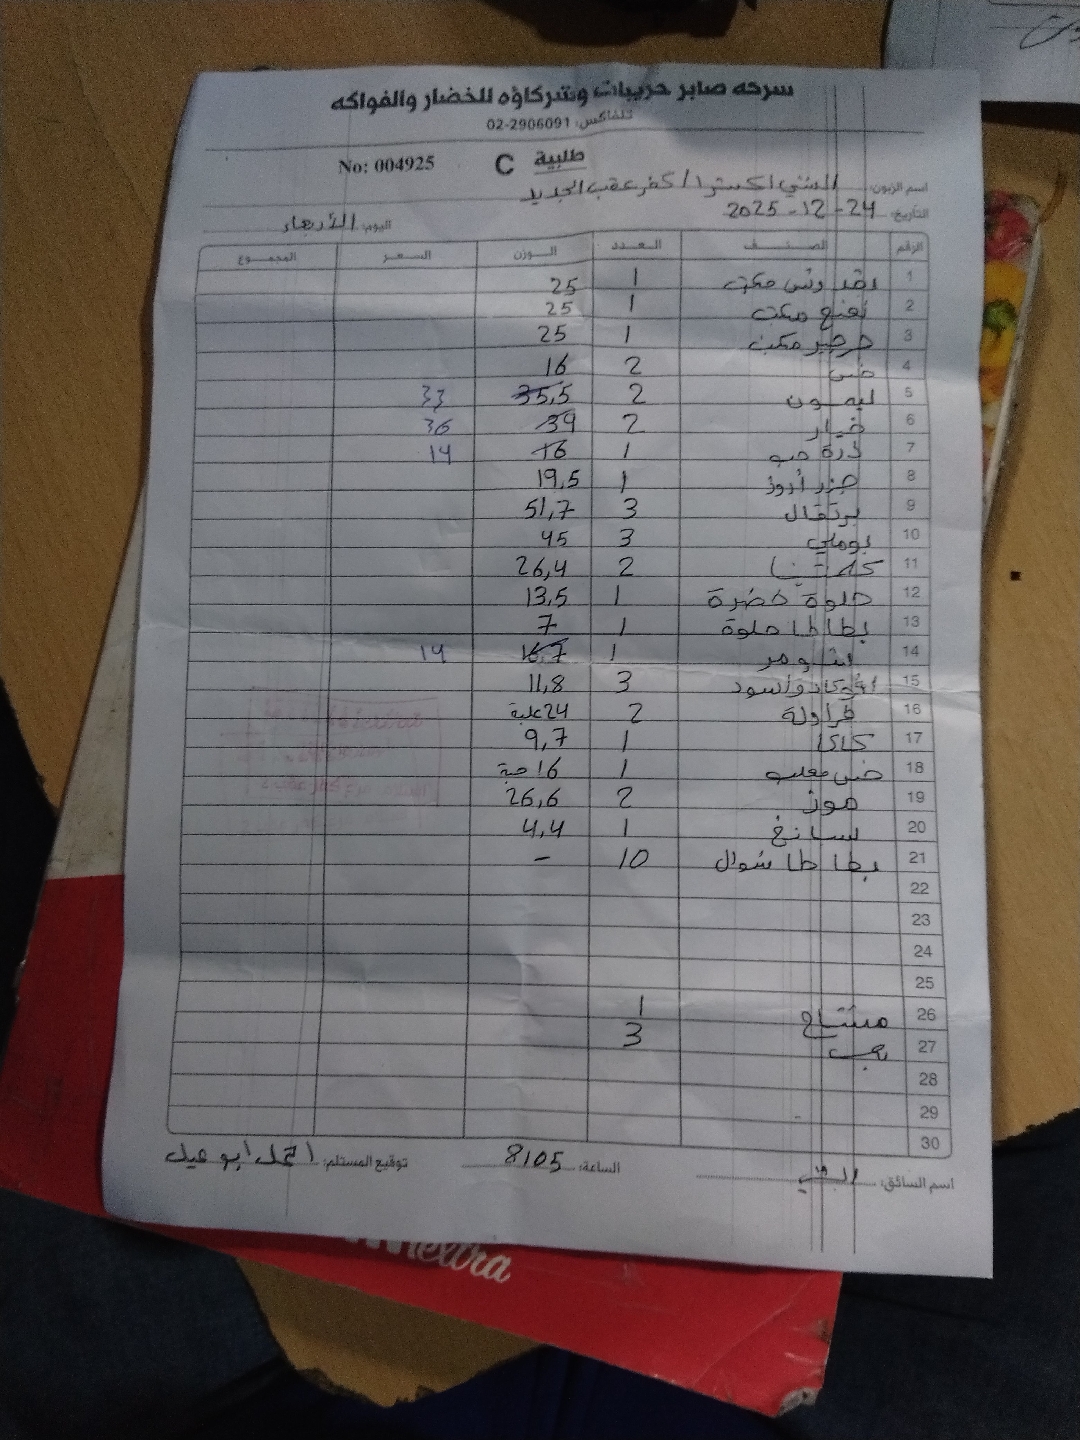 سرحه صابر حريبات وشركاؤه للخضار والفواكه
تلفاكس: 02-2906091
طلبية C No: 004925
اسم الزبون: السني اكسترا / كفر عقب الجديد
التاريخ: 24-12-2025 اليوم: الأربعاء
الرقم الصنف العدد الوزن السعر المجموع
1 بقدونس مكتب 1 25
2 نعنع مكتب 1 25
3 جرجير مكتب 1 25
4 خس 2 16
5 ليمون 2 35,5 33
6 خيار 2 39 36
7 ذرة حب 1 16 14
8 جزر أدوز 1 19,5
9 برتقال 3 51,7
10 بوملي 3 45
11 كلمنتينا 2 26,4
12 حلوة خضرة 1 13,5
13 بطاطا حلوة 1 7
14 1 16,7 14
15 أفوكادو اسود 3 11,8
16 فراولة 2 24 علبة
17 كاكا 1 9,7
18 خس معلب 1 16 حبة
19 موز 2 26,6
20 سبانخ 1 4,4
21 بطاطا شوال 10 -
22
23
24
25
26 مشتاح 1
27 3
28
29
30
اسم السائق: الساعة: 8:05 توقيع المستلم: احمد ابو عيد
extra